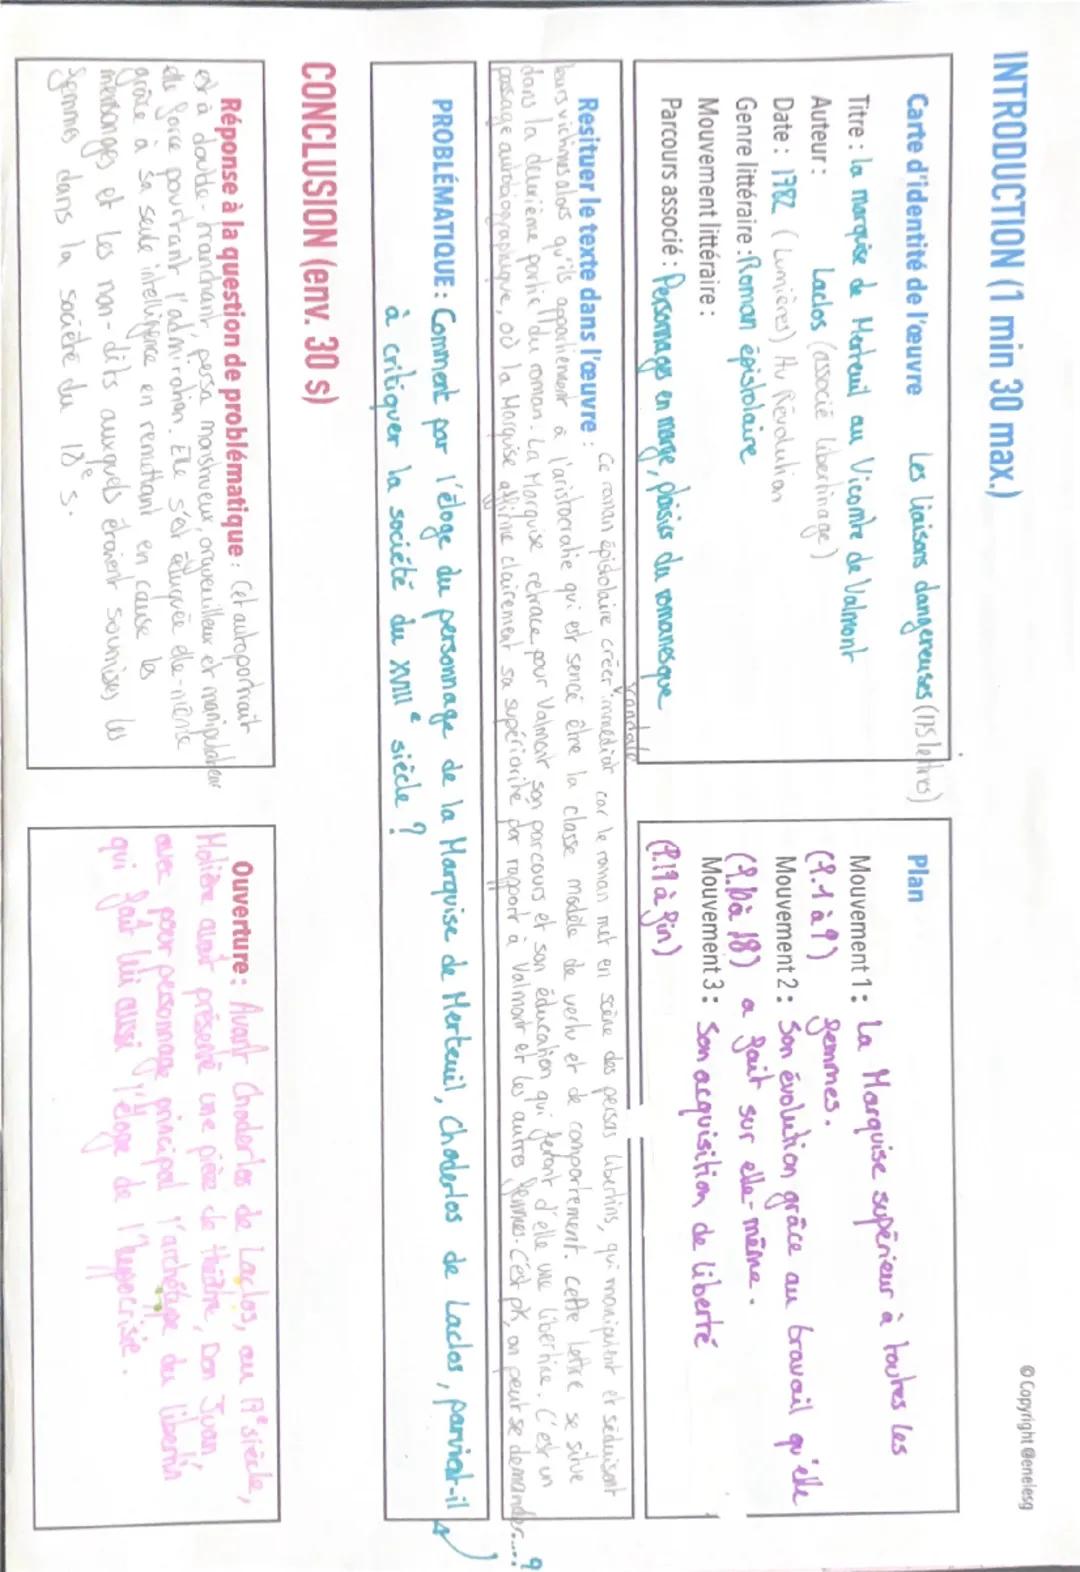 INTRODUCTION (1 min 30 max.)
© Copyright @enelesg
Carte d'identité de l'œuvre Les liaisons dangereuses (175 lettres)
Titre : la marquise de Merteuil au Vicomte de Valmont
Auteur : Laclos (associé libertinage)
Date : 1782 (Lumières) Av Révolution
Genre littéraire : Roman épistolaire
Mouvement littéraire :
Parcours associé : Personnages en marge, plaisirs du romanesque
Plan
Mouvement 1 : La Marquise supérieur à toutes les
(l.1 à 9) femmes.
Mouvement 2 : Son évolution grâce au travail qu'elle
(l.10 à 18) a fait sur elle-même.
Mouvement 3 : Son acquisition de liberté
(l.19 à fin)
scandale
Resituer le texte dans l'œuvre : Ce roman épistolaire créer immédiat car le roman met en scène des persos libertins, qui manipulent et séduisent
leurs victimes alors qu'ils appartiennent à l'aristocratie qui est sencé être la classe modèle de vertu et de comportement. Cette lettre se situe
dans la deuxième partie du roman. La Marquise retrace pour Valmont son parcours et son éducation qui feront d'elle une libertine. C'est un
passage autobiographique, où la Marquise affirme clairement sa supériorité par rapport à Valmont et les autres femmes. C'est pk, on peut se demander....?
PROBLÉMATIQUE : Comment par l'éloge du personnage de la Marquise de Merteuil, Choderlos de Laclos, parvient-il
à critiquer la société du XVIIIe siècle ?
CONCLUSION (env. 30 s)
Réponse à la question de problématique : Cet autoportrait
est à double-tranchant, perso monstrueux, orgueilleux et manipulateur
elle force pourtant l'admiration. Elle s'est éduquée elle-même
grâce à sa seule intelligence en remettant en cause les
mensonges et les non-dits auxquels étaient soumises les
femmes dans la société du 18e s.
Ouverture : Avant Choderlos de Laclos, au 17e siècle,
Molière avait présenté une pièce de théâtre, Dom Juan,
avec pour personnage principal l'archétype du libertin
qui fait lui aussi l'éloge de l'hypocrisie.